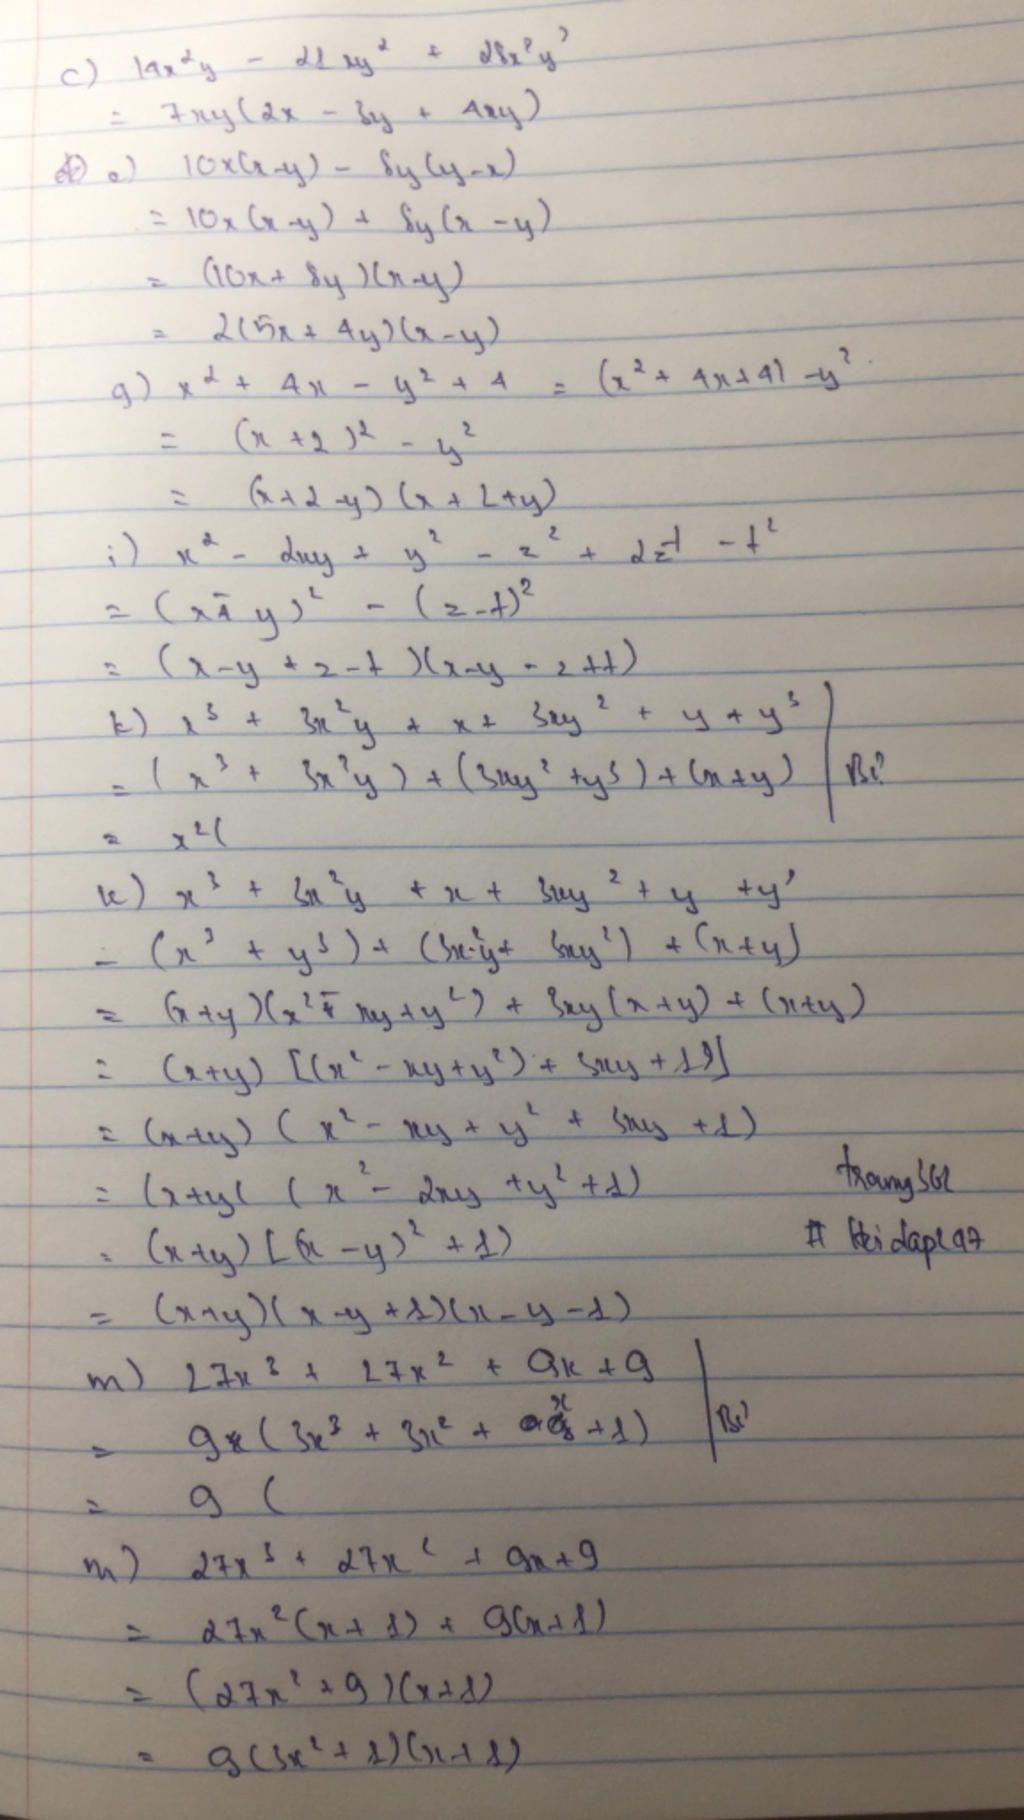 c) 14x²y - 21xy² + 28x²y²
= 7xy(2x - 3y + 4xy)
e) 10x(x-y) - 8y(y-x)
= 10x(x-y) + 8y(x-y)
= (10x + 8y)(x-y)
= 2(5x + 4y)(x-y)
g) x² + 4x - y² + 4 = (x² + 4x + 4) - y²
= (x + 2)² - y²
= (x+2-y)(x+2+y)
i) x² - 2xy + y² - z² + 2zt - t²
= (x - y)² - (z-t)²
= (x-y + z-t)(x-y - z+t)
k) x³ + 3x²y + x + 3xy² + y + y³
= (x³ + 3x²y) + (3xy² + y³) + (x+y) Bỏ
= x²(
k) x³ + 3x²y + x + 3xy² + y + y³
= (x³ + y³) + (3x²y + 3xy²) + (x+y)
= (x+y)(x² - xy + y²) + 3xy(x+y) + (x+y)
= (x+y) [(x² - xy + y²) + 3xy + 1]
= (x+y) (x² - xy + y² + 3xy + 1)
= (x+y( (x² - 2xy + y² + 1)
= (x+y) [(x-y)² + 1)
= (x+y)(x-y+1)(x-y-1)
m) 27x³ + 27x² + 9x + 9
= 9(3x³ + 3x² + x + 1) Bỏ
= 9 (
m) 27x³ + 27x² + 9x + 9
= 27x²(x+1) + 9(x+1)
= (27x² + 9)(x+1)
= 9(3x² + 1)(x+1)